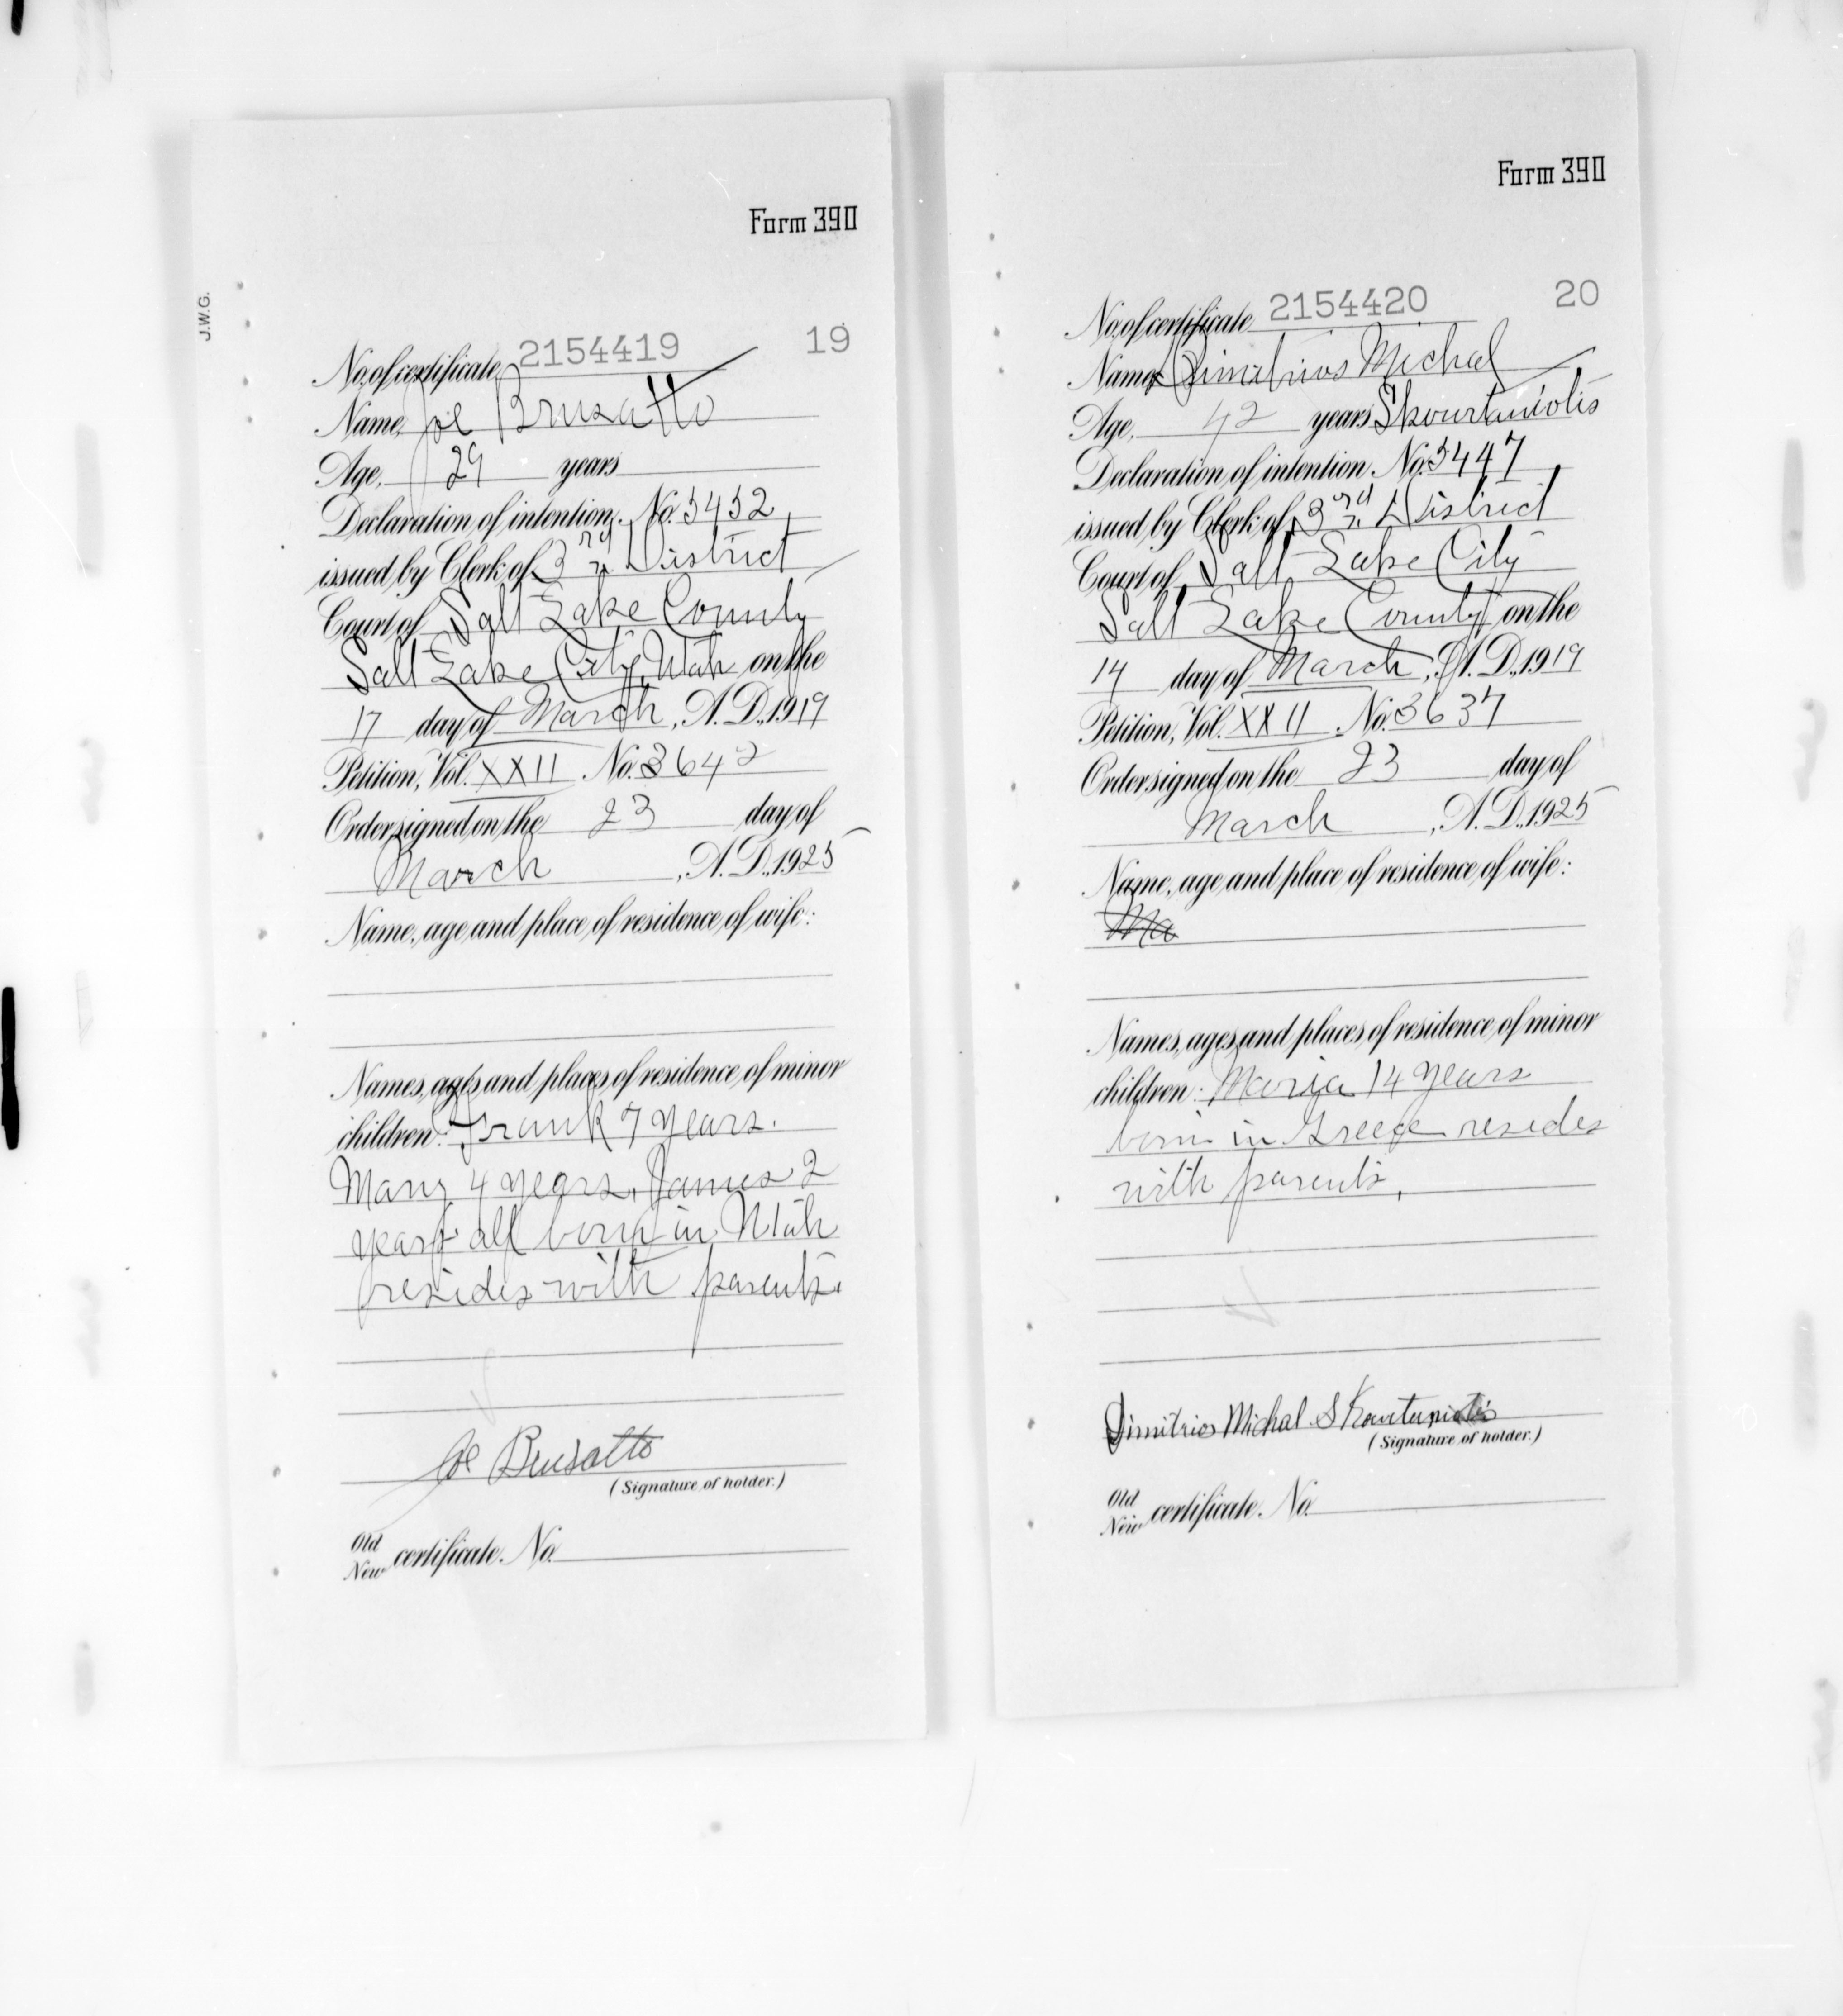 J.W.G.
Form 390
No. of certificate, 2154419 19
Name, Joe Brusatto
Age, 29 years
Declaration of intention, No. 5452
issued by Clerk of 3rd District
Court of Salt Lake County
Salt Lake City, Utah on the
17 day of March, A. D., 1919
Petition, Vol. XXII No. 3642
Order signed on the 23 day of
March, A. D., 1925
Name, age and place of residence of wife:
Names, ages and places of residence of minor
children: Frank 7 years.
Mary 4 years, James 2
years all born in Utah
resides with parents.
Joe Brusatto
(Signature of holder.)
Old
New certificate No.
Form 390
No. of certificate, 2154420 20
Name, Dimitrios Michal
Age, 42 years Skourtaniotis
Declaration of intention, No. 5447
issued by Clerk of 3rd District
Court of Salt Lake City
Salt Lake County on the
14 day of March, A. D., 1919
Petition, Vol. XXII No. 3637
Order signed on the 23 day of
March, A. D., 1925
Name, age and place of residence of wife:
Ma
Names, ages and places of residence of minor
children: Maria 14 years
born in Greece resides
with parents.
Dimitrios Michal Skourtaniotis
(Signature of holder.)
Old
New certificate No.